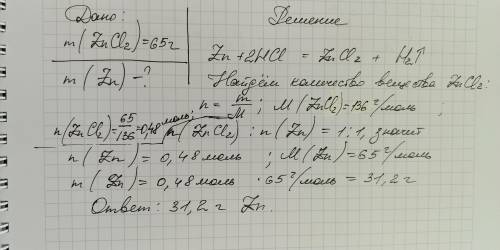 Дано:
Решение
m(ZnCl2)=65г
m(Zn)-?
Zn+2HCl = ZnCl2 + H2↑
Найдём количество вещества ZnCl2:
n = m/M; M(ZnCl2)=136г/моль;
n(ZnCl2)=65/136=0,48моль; n(ZnCl2) : n(Zn) = 1:1, значит
n(Zn) = 0,48моль ; M(Zn)=65г/моль
m(Zn) = 0,48моль · 65г/моль = 31,2г
Ответ: 31,2г Zn.